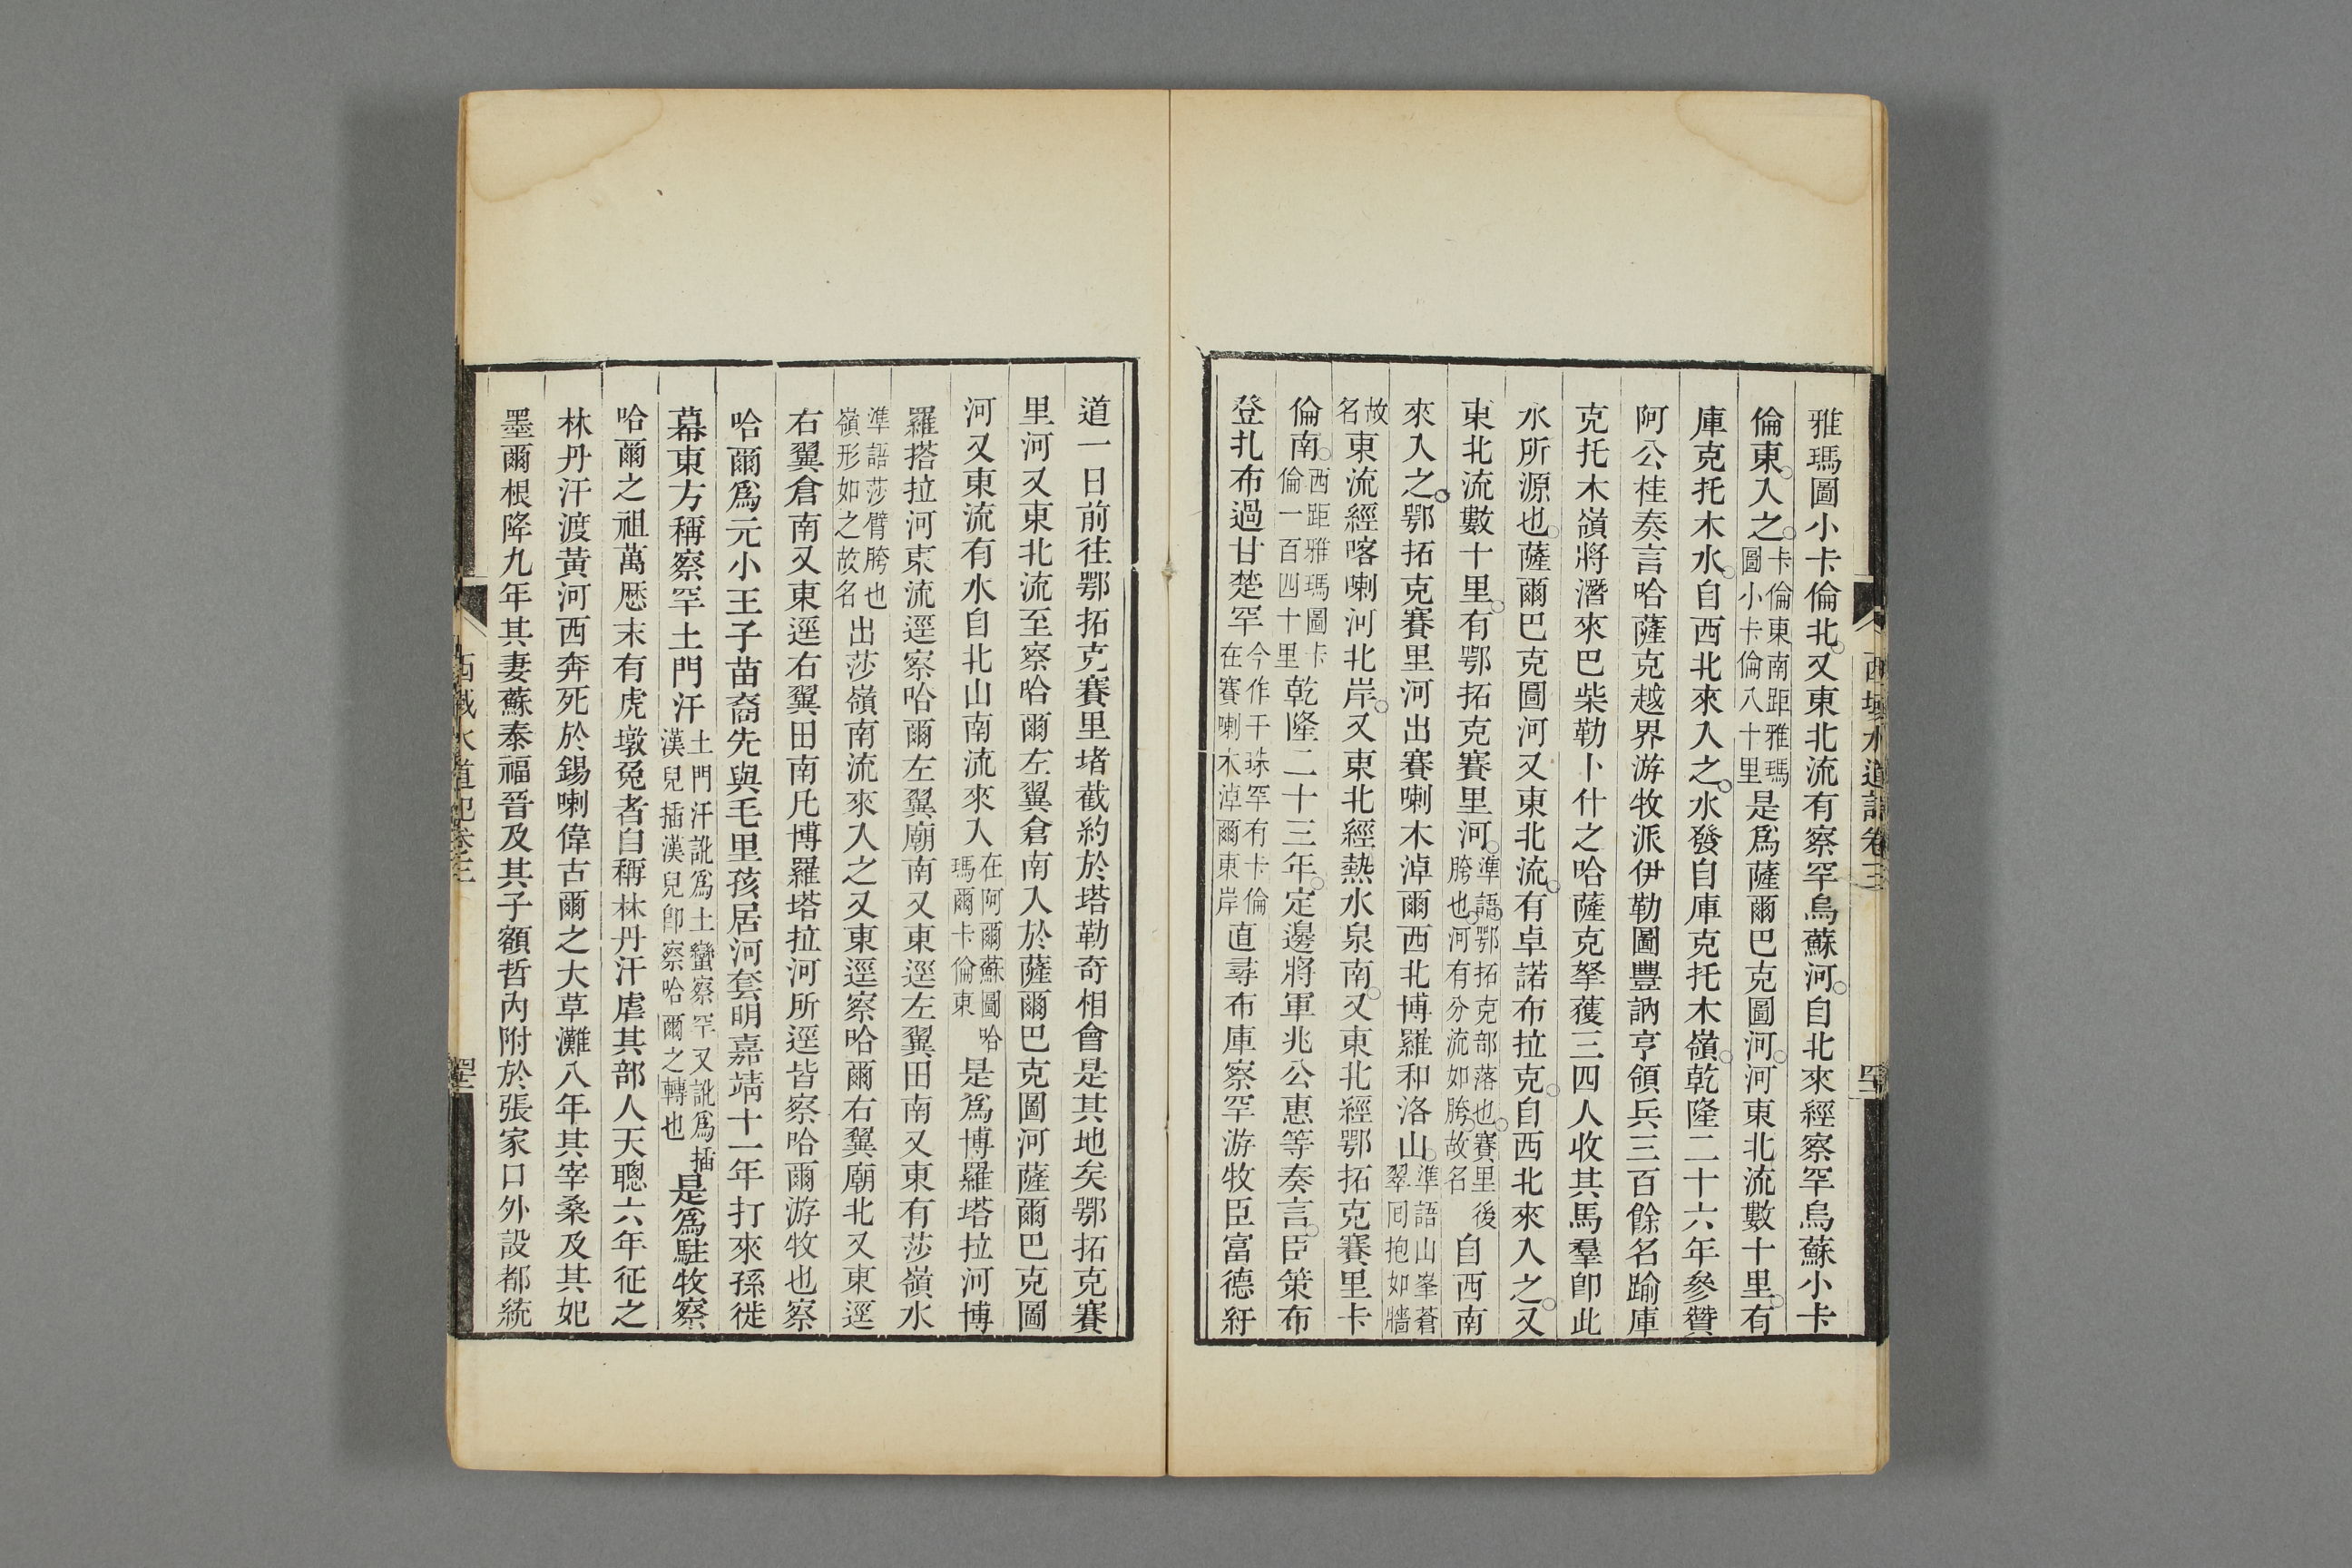 雅瑪圖小卡倫北。又東北流有察罕烏蘇河。自北來經察罕烏蘇小卡
倫東。入之。卡倫東南距雅瑪圖小卡倫八十里是爲薩爾巴克圖河。河東北流數十里。有
庫克托木水。自西北來入之。水發自庫克托木嶺。乾隆二十六年參贊
阿公桂奏言哈薩克越界游牧派伊勒圖豐訥亨領兵三百餘名踰庫
克托木嶺將潛來巴柴勒卜什之哈薩克拏獲三四人收其馬羣卽此
水所源也。薩爾巴克圖河又東北流。有卓諾布拉克。自西北來入之。又
東北流數十里。有鄂拓克賽里河。準語。鄂拓克部落也。賽里後胯也。河有分流如胯。故名自西南
來入之。鄂拓克賽里河出賽喇木淖爾西北博羅和洛山。準語山峯蒼翠囘抱如牆
故名東流經喀喇河北岸。又東北經熱水泉南。又東北經鄂拓克賽里卡
倫南。西距雅瑪圖卡倫一百四十里乾隆二十三年。定邊將軍兆公惠等奏言。臣策布
登扎布過甘楚罕今作干珠罕有卡倫在賽喇木淖爾東岸直尋布庫察罕游牧臣富德紆
西域水道記卷三
道一日前往鄂拓克賽里堵截約於塔勒奇相會是其地矣鄂拓克賽
里河又東北流至察哈爾左翼倉南入於薩爾巴克圖河薩爾巴克圖
河又東流有水自北山南流來入在阿爾蘇圖哈瑪爾卡倫東是爲博羅塔拉河博
羅搭拉河東流逕察哈爾左翼廟南又東逕左翼田南又東有莎嶺水
準語莎臂胯也嶺形如之故名出莎嶺南流來入之又東逕察哈爾右翼廟北又東逕
右翼倉南又東逕右翼田南凡博羅塔拉河所逕皆察哈爾游牧也察
哈爾爲元小王子苗裔先與毛里孩居河套明嘉靖十一年打來孫徙
幕東方稱察罕土門汗土門汗訛爲土蠻察罕又訛爲插漢兒插漢兒卽察哈爾之轉也是爲駐牧察
哈爾之祖萬厯末有虎墩兔者自稱林丹汗虐其部人天聰六年征之
林丹汗渡黃河西奔死於錫喇偉古爾之大草灘八年其宰桑及其妃
墨爾根降九年其妻蘇泰福晉及其子額哲內附於張家口外設都統
西域水道記卷三